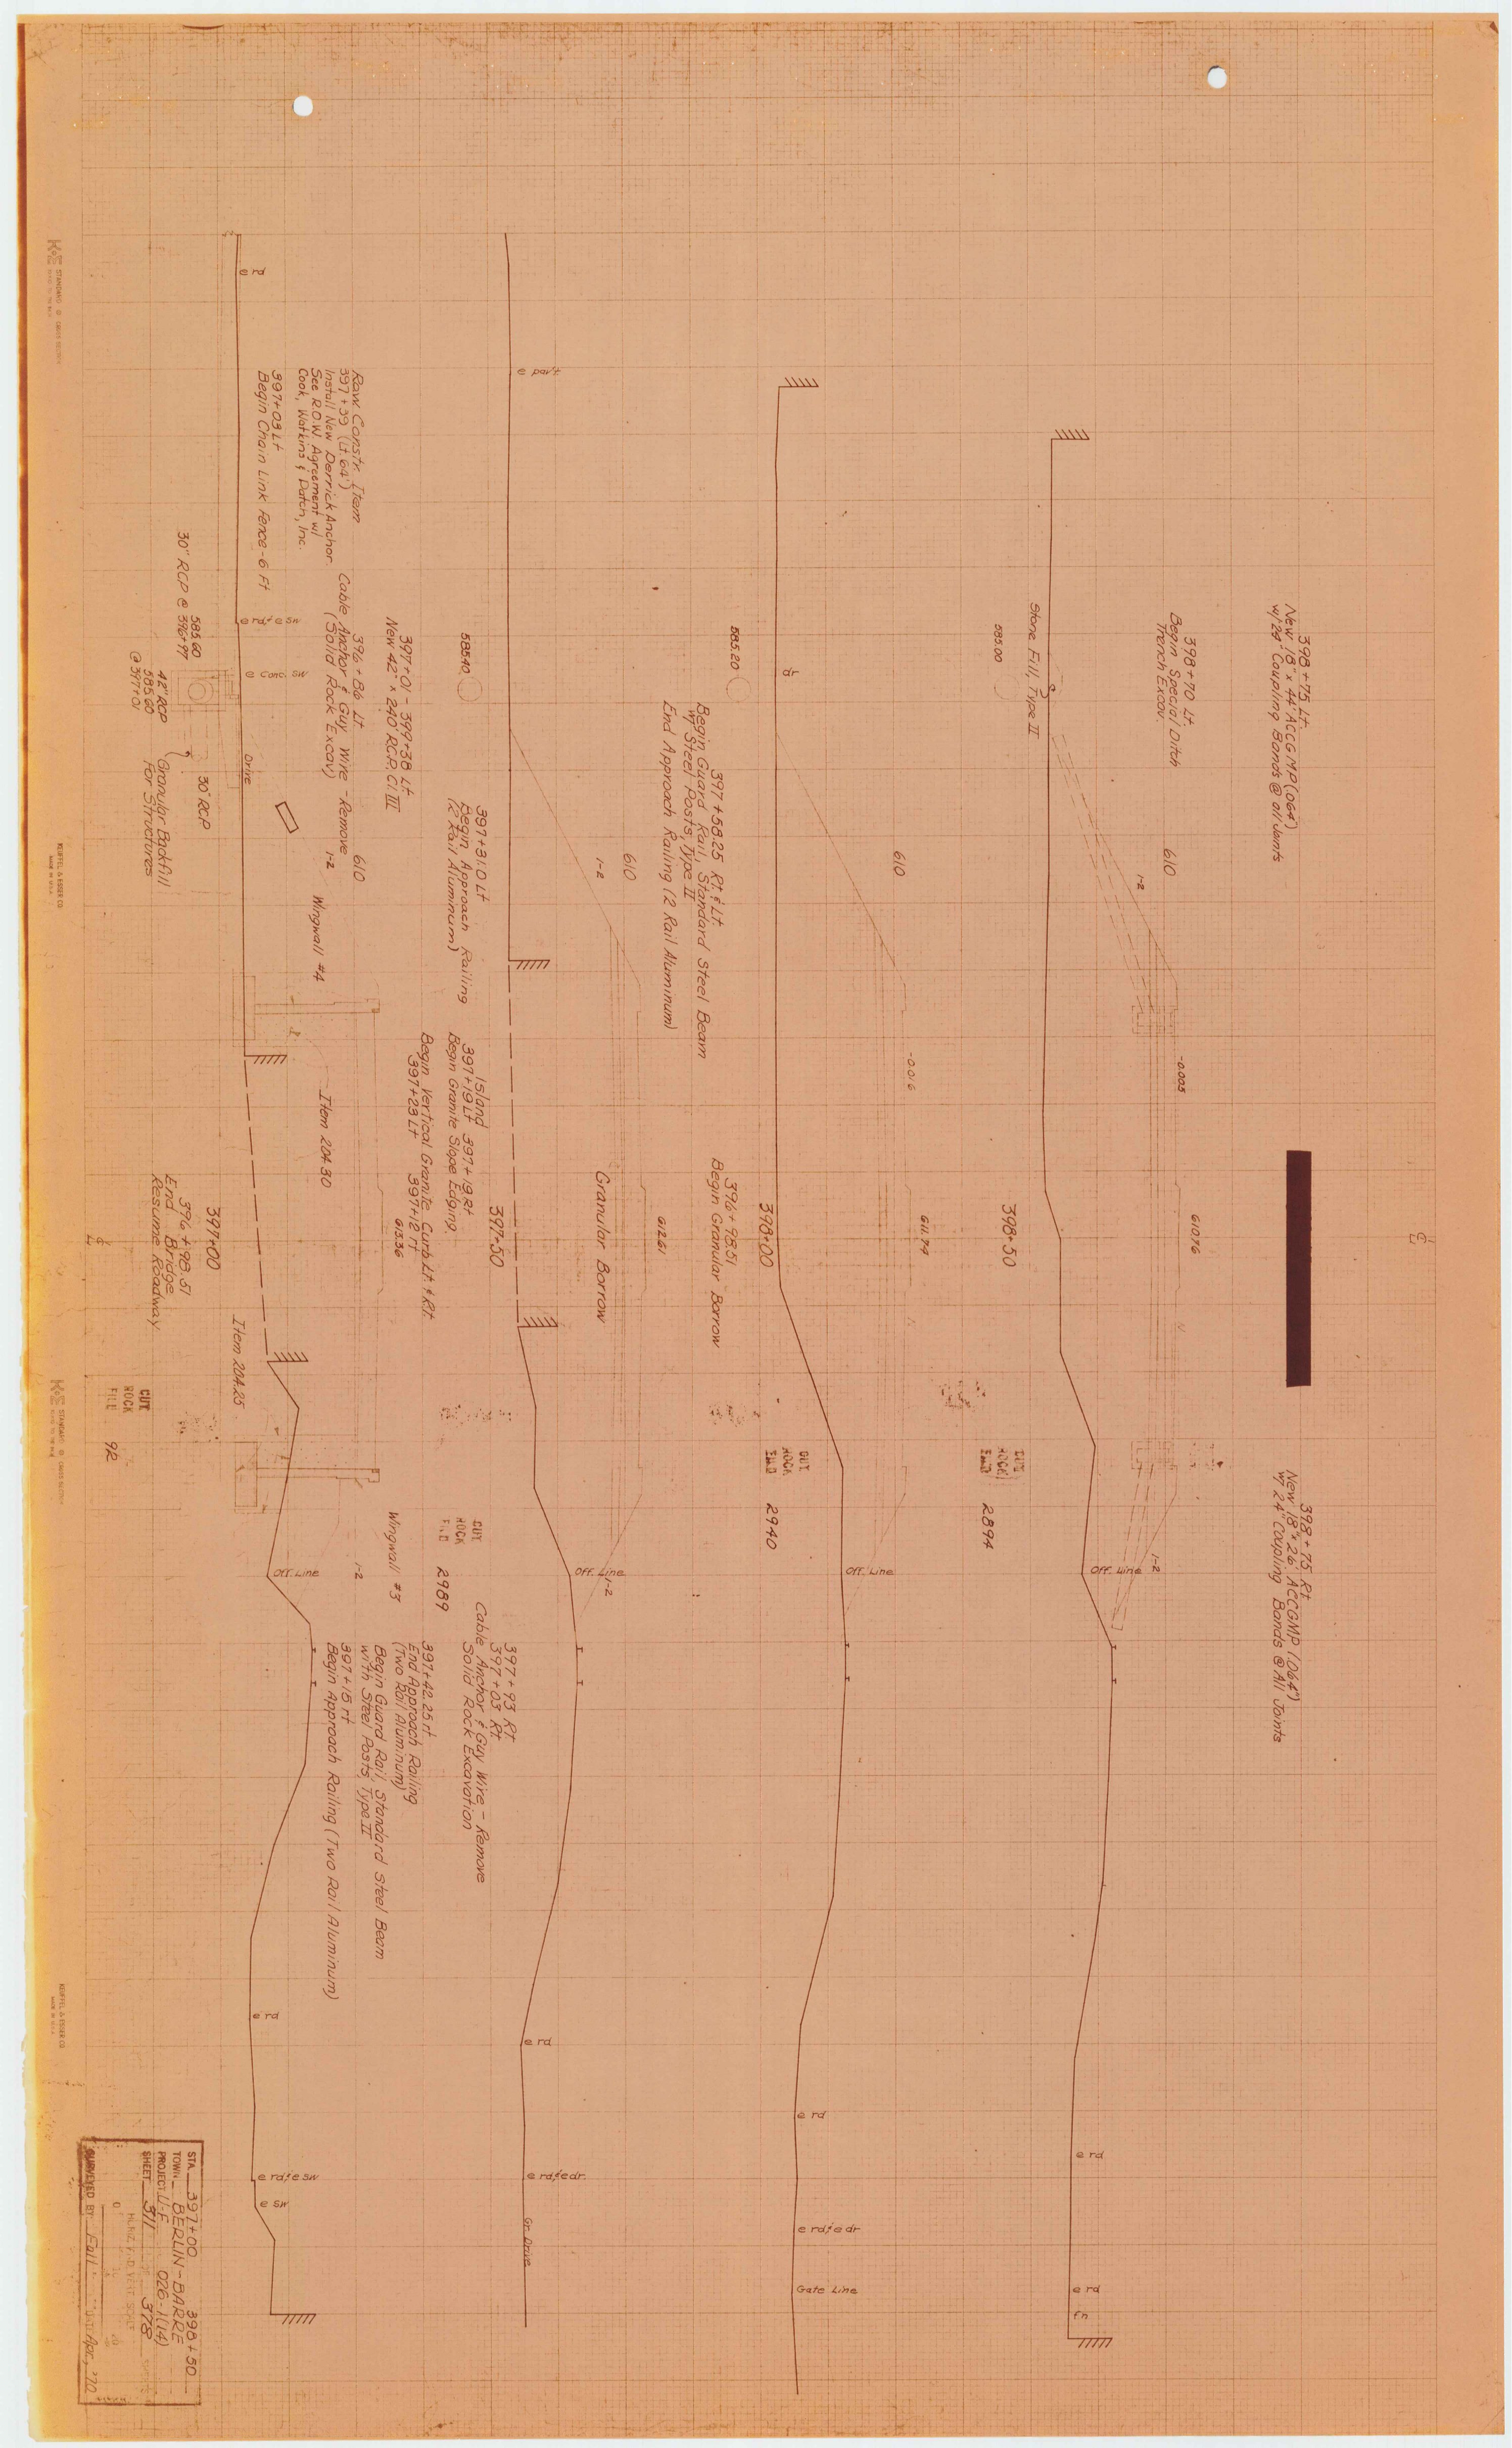 398+75 Lt
New 18" x 44' ACCGMP (.064")
w/ 24" Coupling Bands @ all Joints
398+75 Rt
New 18" x 26' ACCGMP (.064")
w/ 24" Coupling Bands @ All Joints
398+70 Lt
Begin Special Ditch
Trench Excav.
610
1-2
-0.005
610.76
1-2
Off. Line
e rd
e rd
fn
Stone Fill, Type II
585.00
398+50
CUT
ROCK
2894
610
-0.016
611.74
Off. Line
dr
e rd
e rd & e dr
Gate Line
585.20
398+00
CUT
ROCK
2940
397+58.25 Rt. & Lt.
Begin Guard Rail, Standard Steel Beam
w/ Steel Posts, Type II
End Approach Railing (2 Rail Aluminum)
396+98.51
Begin Granular Borrow
610
1-2
612.61
Granular Borrow
Off. Line
1-2
e pav't
e rd
e rd & e dr.
Gr. Drive
585.40
397+50
397+31.0 Lt
Begin Approach Railing
(2 Rail Aluminum)
Island
397+19 Lt 397+19 Rt
Begin Granite Slope Edging
Begin Vertical Granite Curb Lt & Rt
397+23 Lt 397+12 rt
CUT
ROCK
FILL
2989
397+93 Rt
397+03 Rt
Cable Anchor & Guy Wire - Remove
Solid Rock Excavation
397+42.25 rt
End Approach Railing
(Two Rail Aluminum)
Begin Guard Rail, Standard Steel Beam
with Steel Posts, Type II
397+15 rt
Begin Approach Railing (Two Rail Aluminum)
397+01 - 399+38 Lt
New 42" x 240' RCP, Cl. III
613.36
396+86 Lt
Cable Anchor & Guy Wire - Remove
(Solid Rock Excav)
Row Constr. Item
397+39 (Lt. 64')
Install New Derrick Anchor.
See R.O.W. Agreement w/
Cook, Watkins & Patch, Inc.
397+03 Lt
Begin Chain Link Fence - 6 Ft
610
1-2
Wingwall #4
Item 204.30
Wingwall #3
1-2
Off. Line
e rd
e rd & e SW
e Conc. SW
Drive
e rd
e rd & e SW
e SW
585.60
30" RCP @ 396+97
42" RCP
585.60
@ 397+01
30" RCP
Granular Backfill
For Structures
397+00
396+98.51
End Bridge
Resume Roadway
Item 204.25
CUT
ROCK
FILL
92
STA. 397+00 398+50
TOWN BERLIN-BARRE
PROJECT U-F 026-1(14)
SHEET 311 378
SURVEYED BY Fall Apr., '70
K&E STANDARD ® CROSS SECTION
KEUFFEL & ESSER CO.
MADE IN U.S.A.
K&E STANDARD ® CROSS SECTION
KEUFFEL & ESSER CO.